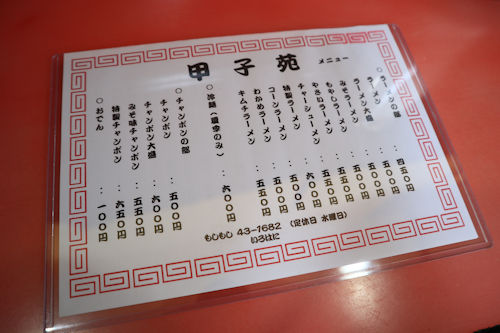 甲子苑 メニュー
○ラーメンの部
ラーメン : 四五〇円
ラーメン大盛 : 五五〇円
みそラーメン :
もやしラーメン :
やさいラーメン :
チャーシューメン :
特製ラーメン :
コーンラーメン :
わかめラーメン : 五五〇円
キムチラーメン : 五五〇円
○冷麺(夏季のみ) : 六〇〇円
○チャンポンの部
チャンポン : 五〇〇円
チャンポン大盛 : 六〇〇円
みそ味チャンポン : 五五〇円
特製チャンポン : 六五〇円
○おでん : 一〇〇円
もしもし 43-1682 (定休日 水曜日)
いろはに